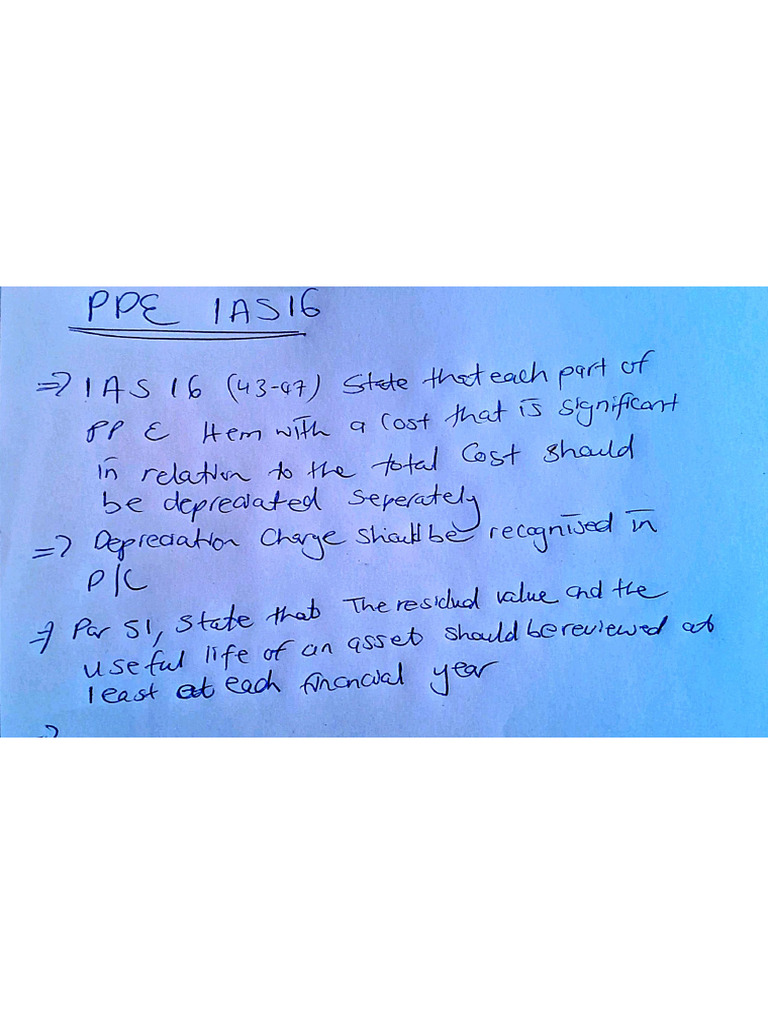 PPE IAS16
=> IAS 16 (43-47) State that each part of
PP E Item with a cost that is significant
in relation to the total cost should
be depreciated seperately
=> Depreciation Charge should be recognised in
P/L
=> Par 51, State that The residual value and the
useful life of an asset should be reviewed at
least at each financial year
=>